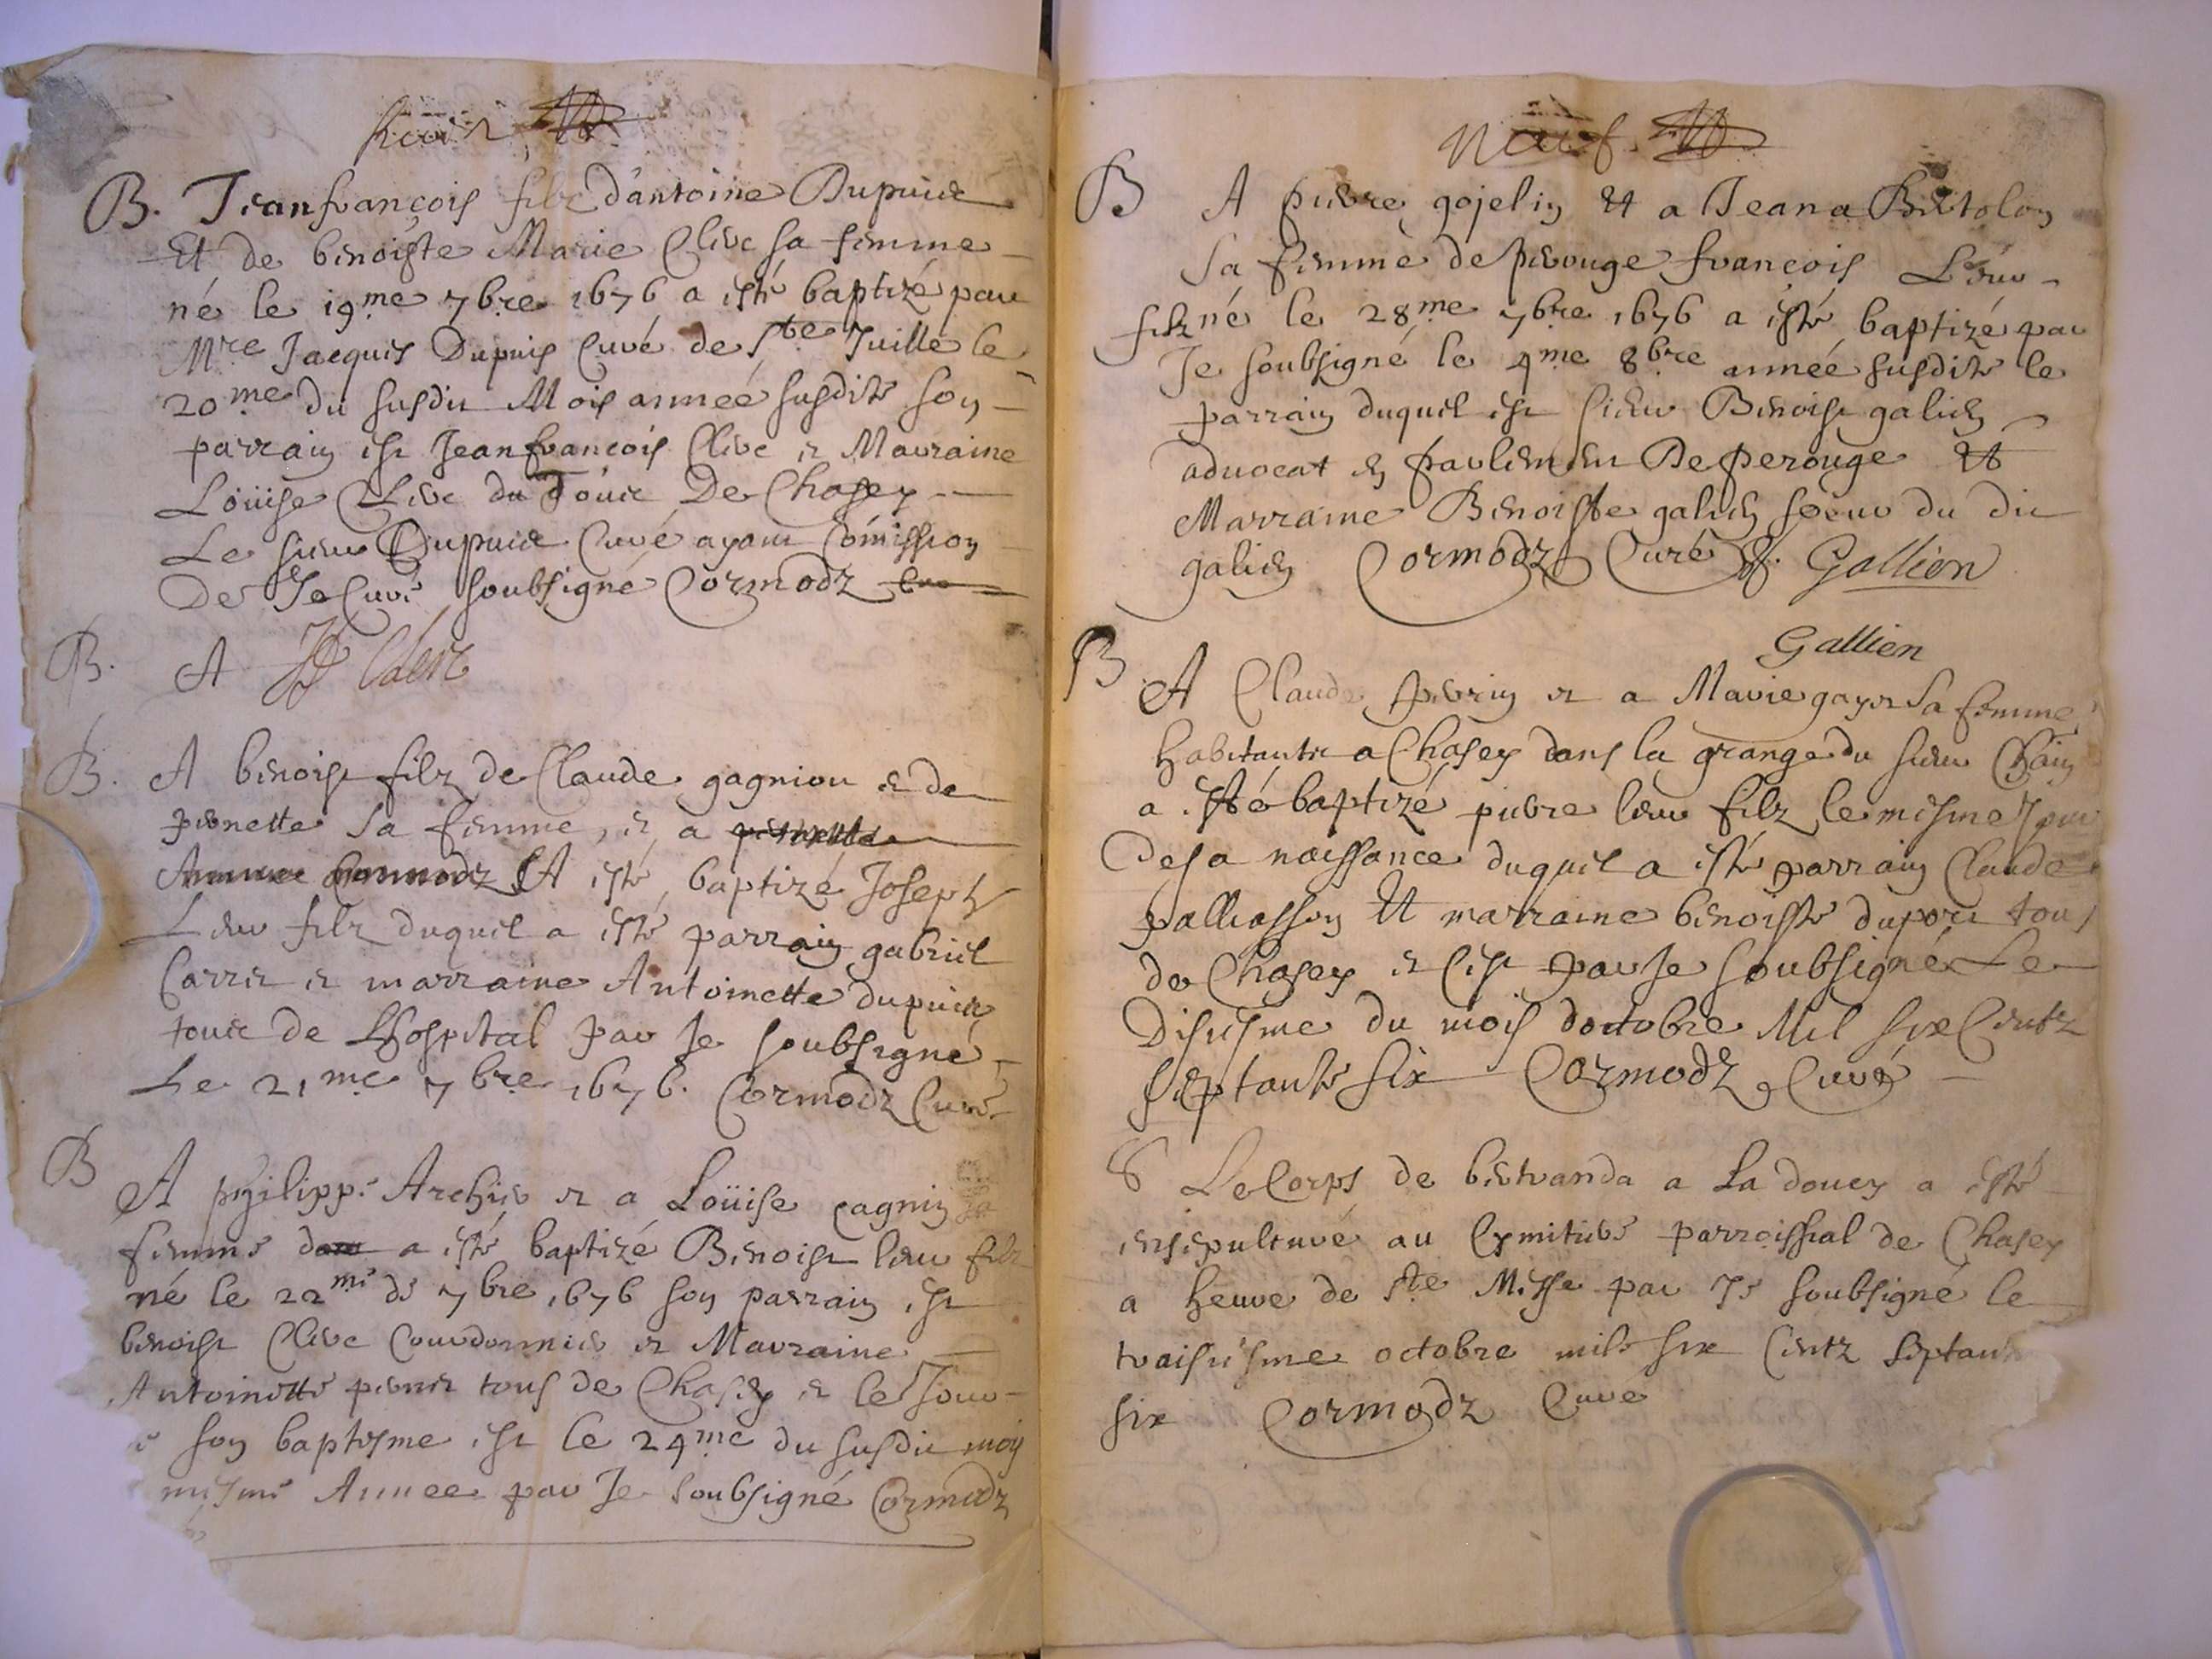 B. Jeanfrançois filz d'antoine Dupuis
Et de benoiste Marie Clerc sa femme
né le 19me 7bre 1676 a esté baptizé par
Mre Jacques Dupuis Curé de Ste Juille le
20me du susdit Mois année susdite son
parrain est Jeanfrancois Clerc et Marraine
Loüise Clerc du De Chasey
Le sieur Dupuis Curé ayant Comission
De Je Curé soubsigné Cormodz
B. A
B. A benoist filz de Claude gagniou et de
pernette sa femme, et a pernette
A esté baptizé Joseph
Leur filz duquel a esté parrain gabriel
Carrer et marraine Antoinette dupuis
tous de Lhospital par Je soubsigné
Le 21me 7bre 1676. Cormodz Curé
B A philippe Archier et a Loüise cagnin sa
femme a esté baptizé Benoist leur filz
né le 22me de 7bre 1676 son parrain est
benoist Clerc Courdonnier et Marraine
Antoinette tous de Chasey et le Jour
son baptesme est le 24me du susdit mois
mesme Annee par Je soubsigné Cormodz
Neuf
B A pierre gojelin Et a Jeana Bertolon
sa femme de perouge françois Leur
filz né le 28me 7bre 1676 a esté baptizé par
Je soubsigné le 4me 8bre année susdite le
parrain duquel est sieur Benoist galien
advocat en parlement De perouge Et
Marraine Benoiste galien soeur du dit
galien Cormodz Curé B. Gallien
Gallien
B A Claude perrin et a Marie gayet sa femme
habitants a Chasey dans la grange du sieur Chain
a esté baptizé pierre leur filz le mesme Jour
de sa naissance duquel a esté parrain Claude
palliasson Et marraine benoiste duport tous
de Chasey et c'est par Je soubsigné Le
Disiesme du mois doctobre Mil six Centz
septante six Cormodz Curé
S Le Corps de bertranda a La douey a esté
ensepulturé au Cymitiere parroissial de Chasey
a heure de ste Messe par Je soubsigné le
traisiesme octobre mil six Centz septante
six Cormodz Curé